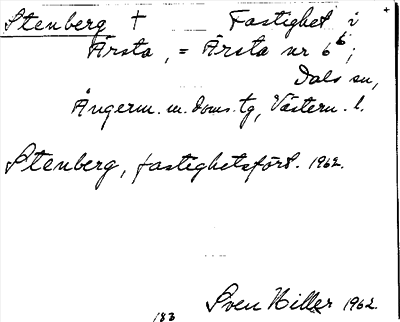 Stenberg † Fastighet i
Årsta, = Årsta nr 6⁶;
Dals sn,
Ångerm. m. doms. tg, Västern. l.
Stenberg, fastighetsfört. 1962.
183 Sven Hiller 1962.